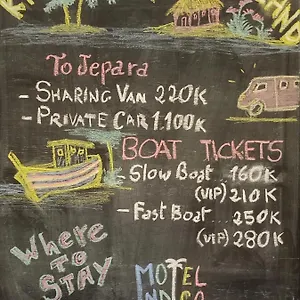 To Jepara
- SHARING VAN 220K
- PRIVATE CAR 1.100K
BOAT TICKETS
- Slow Boat 160K
(VIP) 210K
- Fast Boat 250K
(VIP) 280K
WHERE
TO
STAY
MOTEL